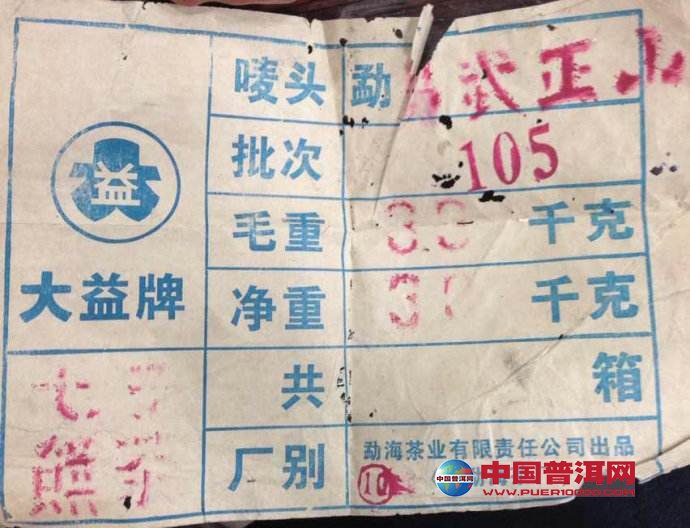 唛头 勐 武正山
批次 105
益
毛重 33 千克
大益牌
净重 3 千克
共 箱
七子
熊猫
厂别 勐海茶业有限责任公司出品
10
中国普洱网
WWW.PUER10000.COM